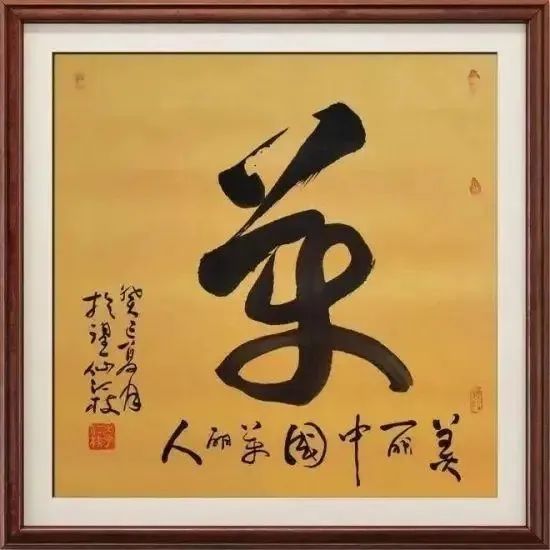 美
美丽中国美丽人
癸巳夏月
於望仙